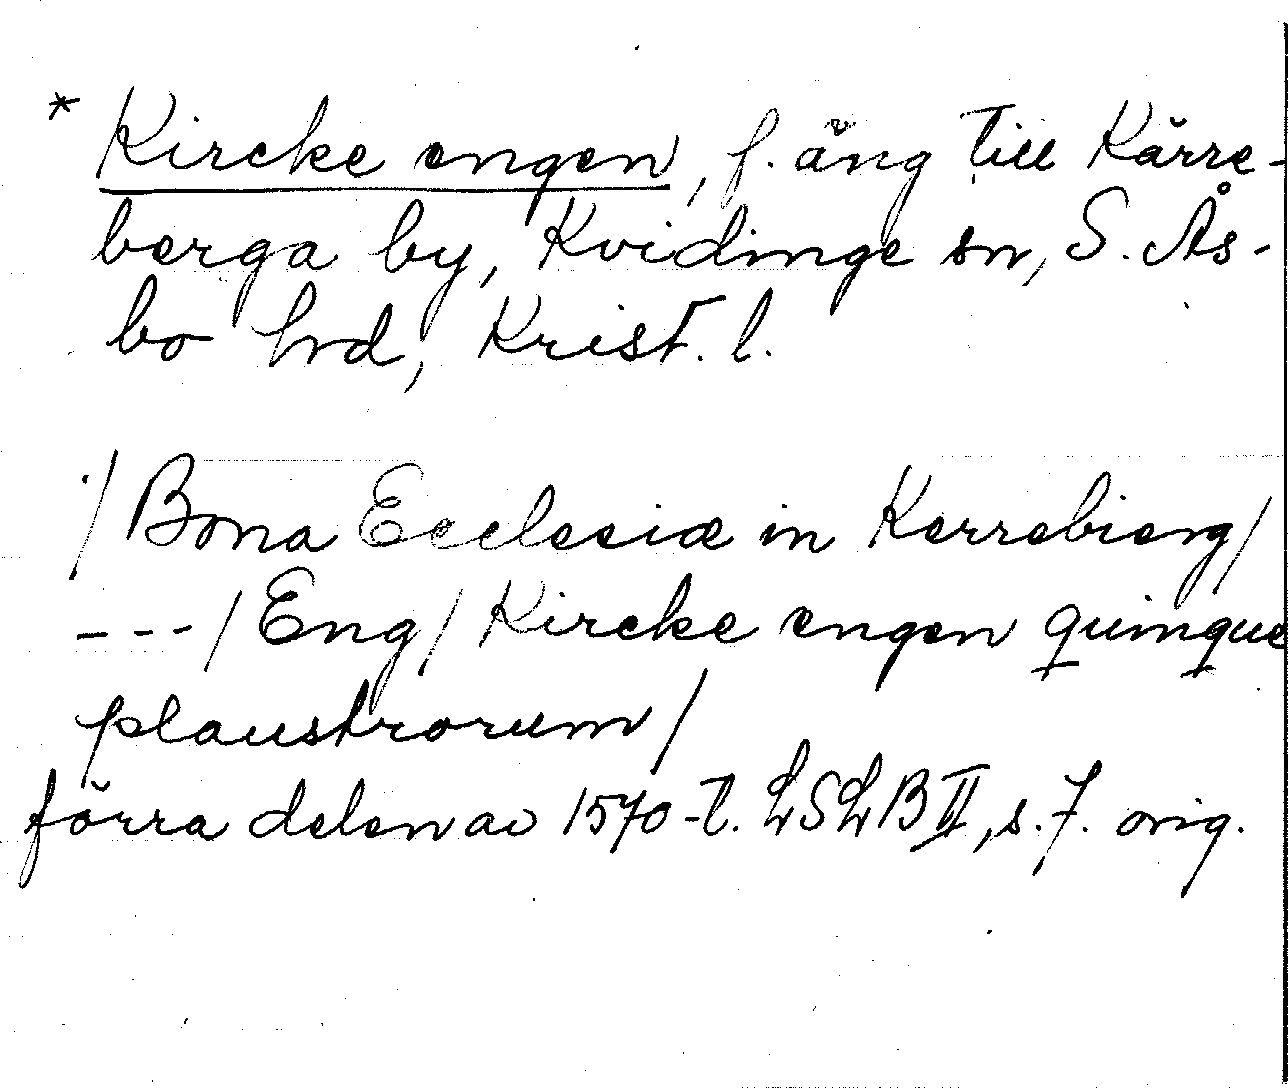 * Kircke engen, f. äng till Kärre-
berga by, Kvidinge sn, S. Ås-
bo hrd, Krist. l.
/Bona Ecclesiæ in Kerrebierg/
---/Eng/ Kircke engen quinque
plaustrorum/
förra delen av 1570-t. LSLB II, s. 7. orig.